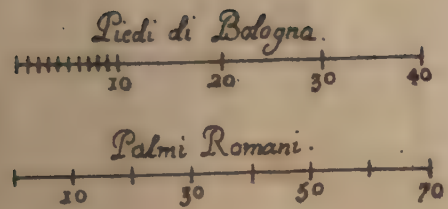 Piedi di Bologna.
10 20 30 40
Palmi Romani.
10 30 50 70